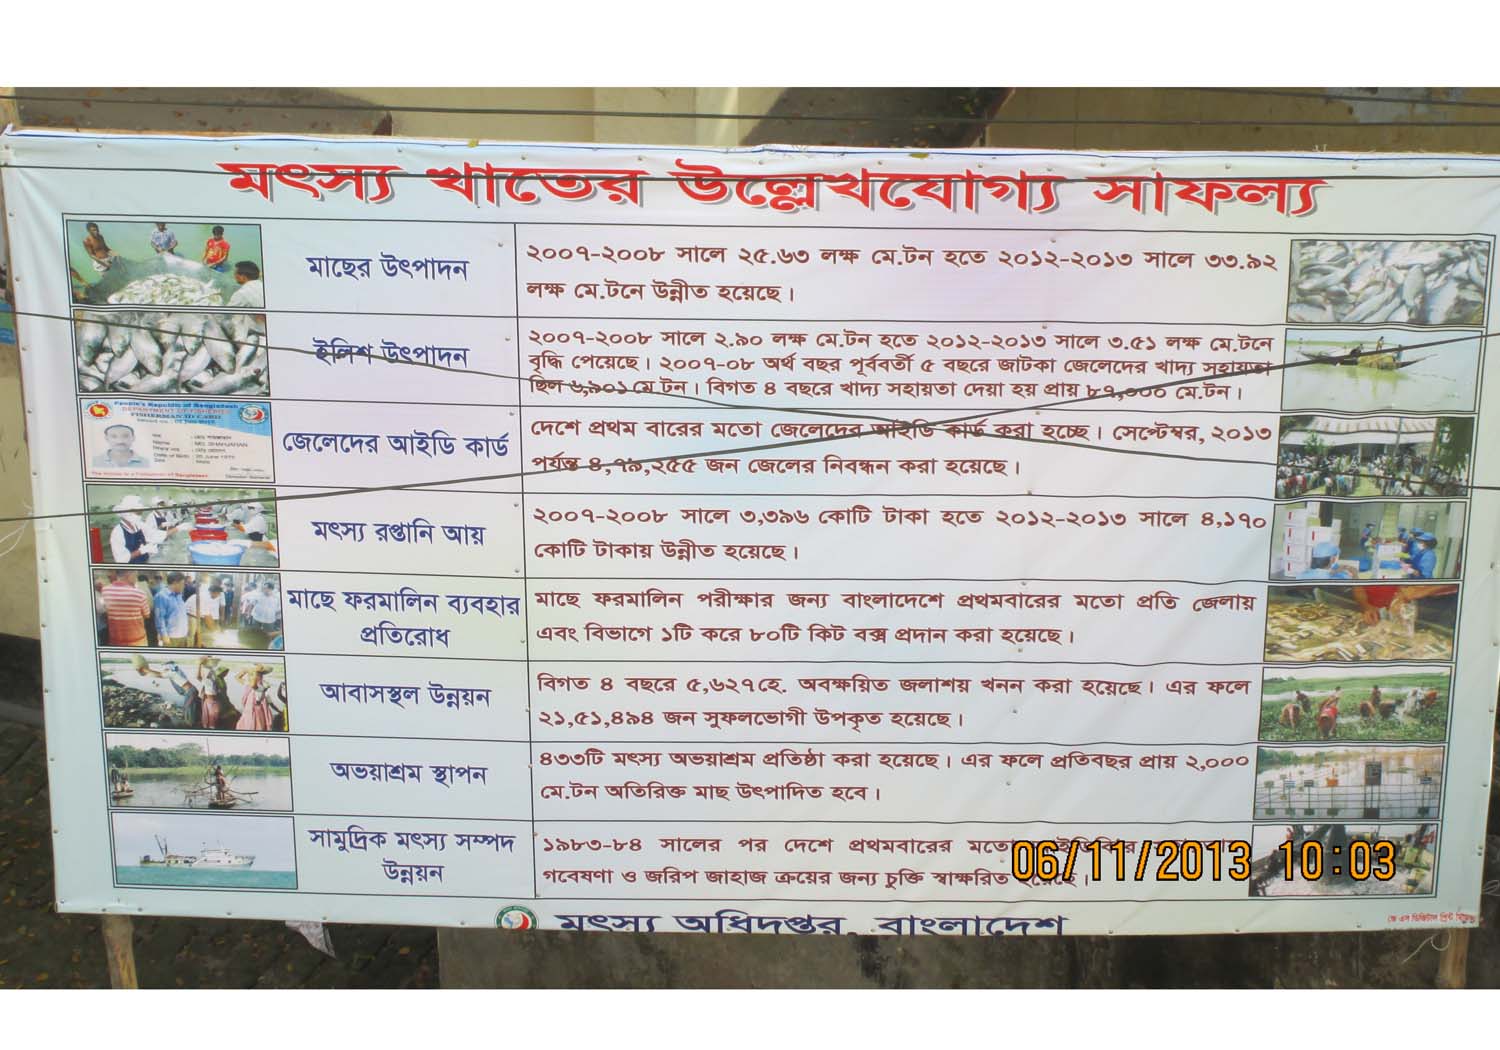 মৎস্য খাতের উল্লেখযোগ্য সাফল্য
মাছের উৎপাদন
২০০৭-২০০৮ সালে ২৫.৬৩ লক্ষ মে.টন হতে ২০১২-২০১৩ সালে ৩৩.৯২
লক্ষ মে.টনে উন্নীত হয়েছে।
ইলিশ উৎপাদন
২০০৭-২০০৮ সালে ২.৯০ লক্ষ মে.টন হতে ২০১২-২০১৩ সালে ৩.৫১ লক্ষ মে.টনে
বৃদ্ধি পেয়েছে। ২০০৭-০৮ অর্থ বছর পূর্ববর্তী ৫ বছরে জাটকা জেলেদের খাদ্য সহায়তা
ছিল ৬,৯০১ মে.টন। বিগত ৪ বছরে খাদ্য সহায়তা দেয়া হয় প্রায় ৮৭,০০০ মে.টন।
People's Republic of Bangladesh
DEPARTMENT OF FISHERIES
FISHERMAN ID CARD
জেলেদের আইডি কার্ড
দেশে প্রথম বারের মতো জেলেদের আইডি কার্ড করা হচ্ছে। সেপ্টেম্বর, ২০১৩
পর্যন্ত ৪,৭৯,২৫৫ জন জেলের নিবন্ধন করা হয়েছে।
মৎস্য রপ্তানি আয়
২০০৭-২০০৮ সালে ৩,৩৯৬ কোটি টাকা হতে ২০১২-২০১৩ সালে ৪,১৭০
কোটি টাকায় উন্নীত হয়েছে।
মাছে ফরমালিন ব্যবহার
প্রতিরোধ
মাছে ফরমালিন পরীক্ষার জন্য বাংলাদেশে প্রথমবারের মতো প্রতি জেলায়
এবং বিভাগে ১টি করে ৮০টি কিট বক্স প্রদান করা হয়েছে।
আবাসস্থল উন্নয়ন
বিগত ৪ বছরে ৫,৬২৭হে. অবক্ষয়িত জলাশয় খনন করা হয়েছে। এর ফলে
২১,৫১,৪৯৪ জন সুফলভোগী উপকৃত হয়েছে।
অভয়াশ্রম স্থাপন
৪৩৩টি মৎস্য অভয়াশ্রম প্রতিষ্ঠা করা হয়েছে। এর ফলে প্রতিবছর প্রায় ২,০০০
মে.টন অতিরিক্ত মাছ উৎপাদিত হবে।
সামুদ্রিক মৎস্য সম্পদ
উন্নয়ন
১৯৮৩-৮৪ সালের পর দেশে প্রথমবারের মতো
গবেষণা ও জরিপ জাহাজ ক্রয়ের জন্য চুক্তি স্বাক্ষরিত হয়েছে।
06/11/2013 10:03
মৎস্য অধিদপ্তর, বাংলাদেশ